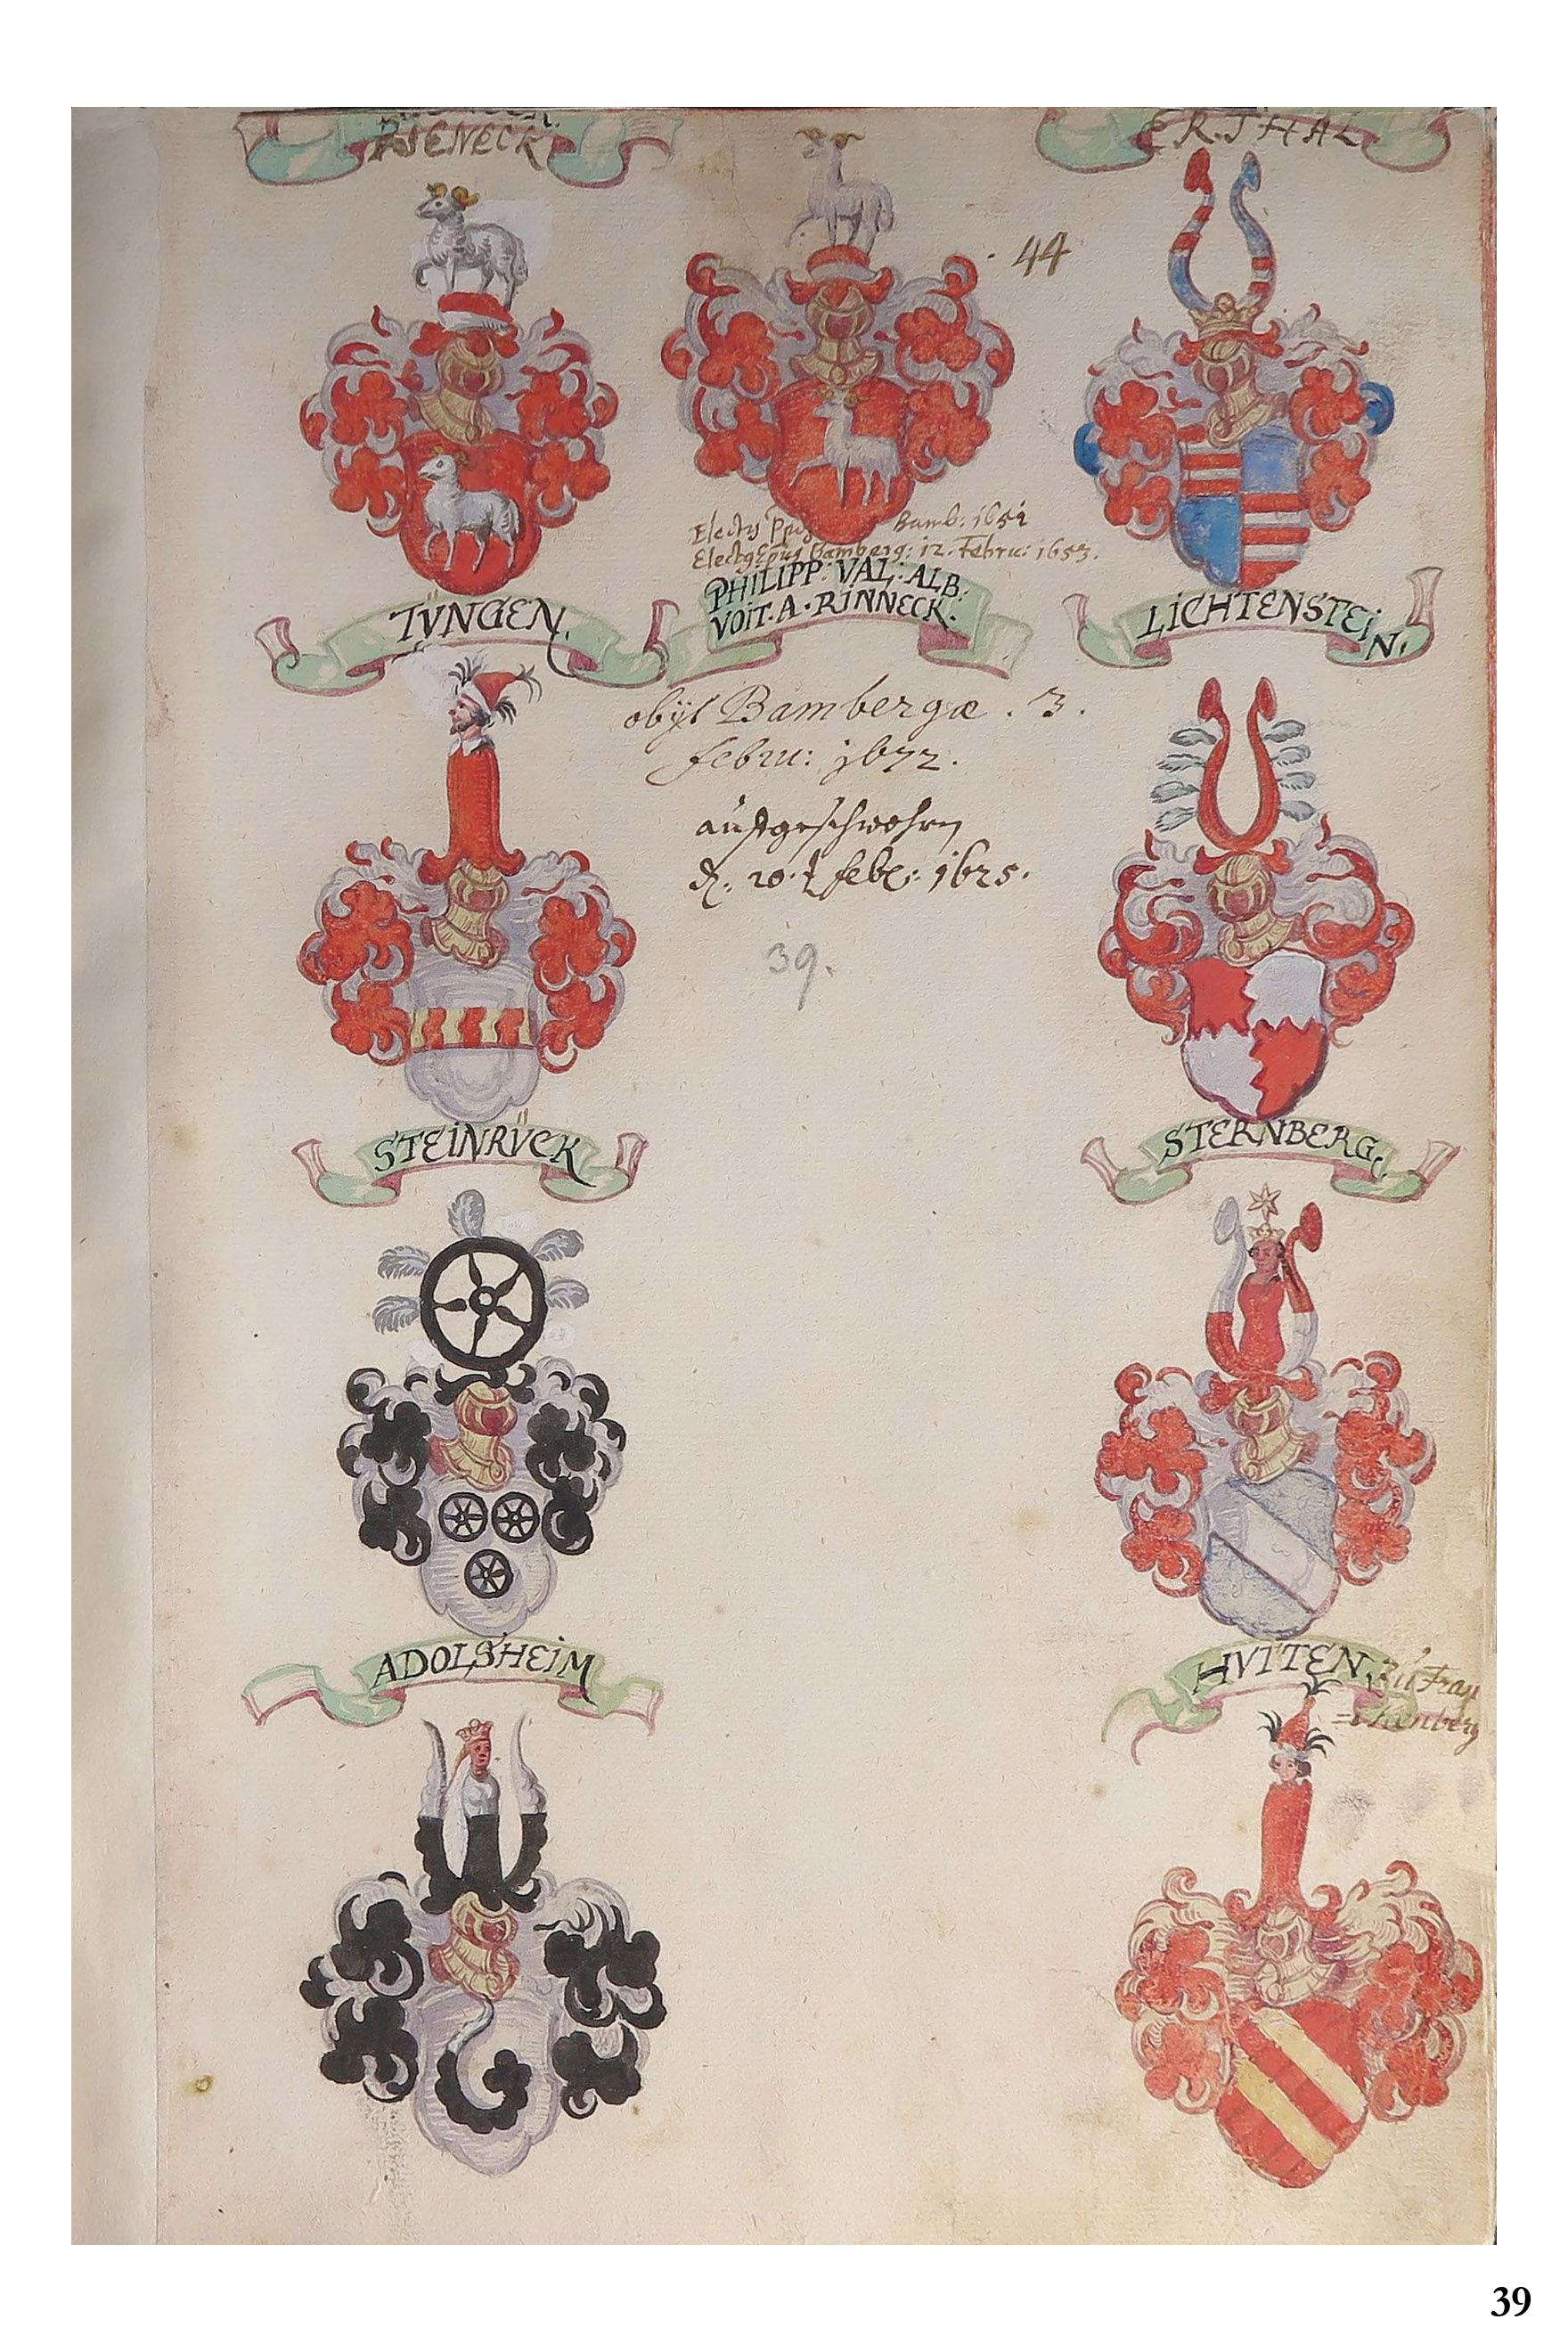 RIENECK
ERTHAL
44
Bamb: 1652
Bamberg: 12. Febru: 1653.
TÜNGEN.
PHILIPP: VAL: ALB:
VOIT. A. RINNECK.
LICHTENSTEIN.
obijt Bambergæ. 3.
febru: 1672.
auffgeschwohrn
1625.
39.
STEINRÜCK
STERNBERG
ADOLSHEIM
HVTTEN zu Fran
=kenberg
39